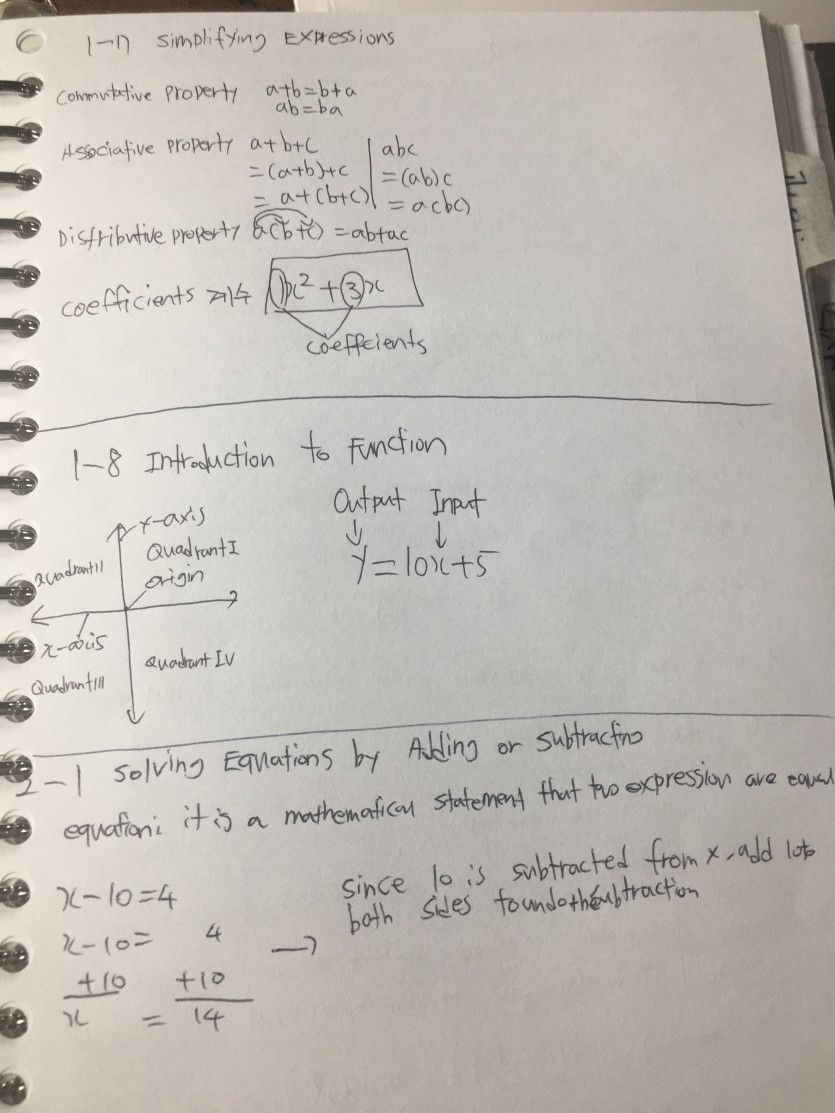 1-7 Simplifying Expressions
Commutative property a+b=b+a
ab=ba
Associative property a+b+c
=(a+b)+c
=a+(b+c)
abc
=(ab)c
=a(bc)
Distributive property a(b+c)=ab+ac
coefficients 계수 1x²+3x
coeffcients
1-8 Introduction to Function
Y-axis
Quadrant I
origin
Quadrant II
x-axis
Quadrant III
Quadrant IV
Output Input
y=10x+5
2-1 Solving Equations by Adding or Subtracting
equation: it is a mathematical statement that two expression are equal
x-10=4
x-10= 4
+10 +10
x = 14
since 10 is subtracted from x, add 10 to
both sides to undo the subtraction